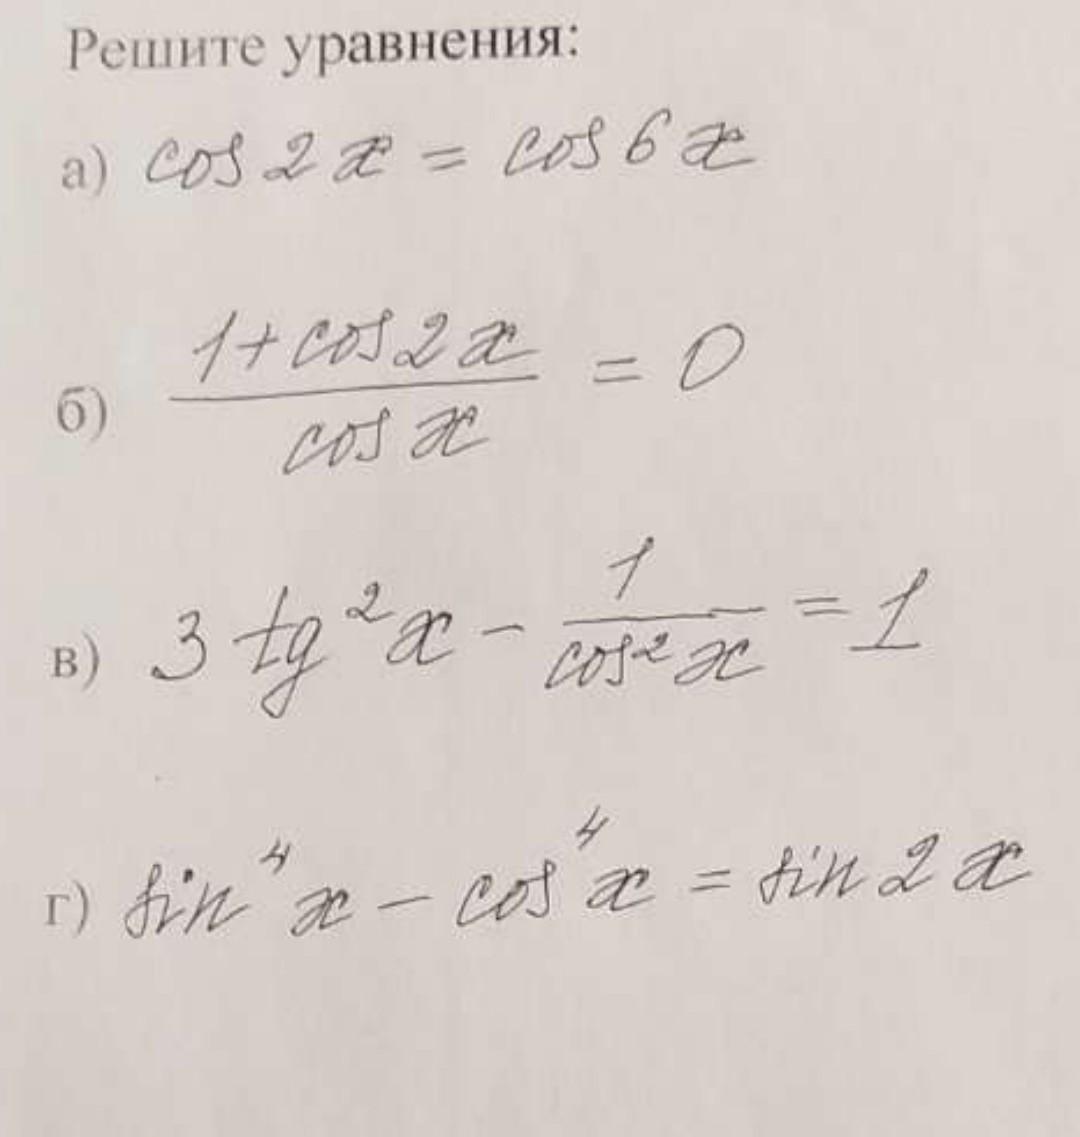 Решите уравнения:
а) cos 2x = cos 6x
б) (1 + cos 2x) / (cos x) = 0
в) 3 tg²x - 1 / (cos²x) = 1
г) sin⁴x - cos⁴x = sin 2x